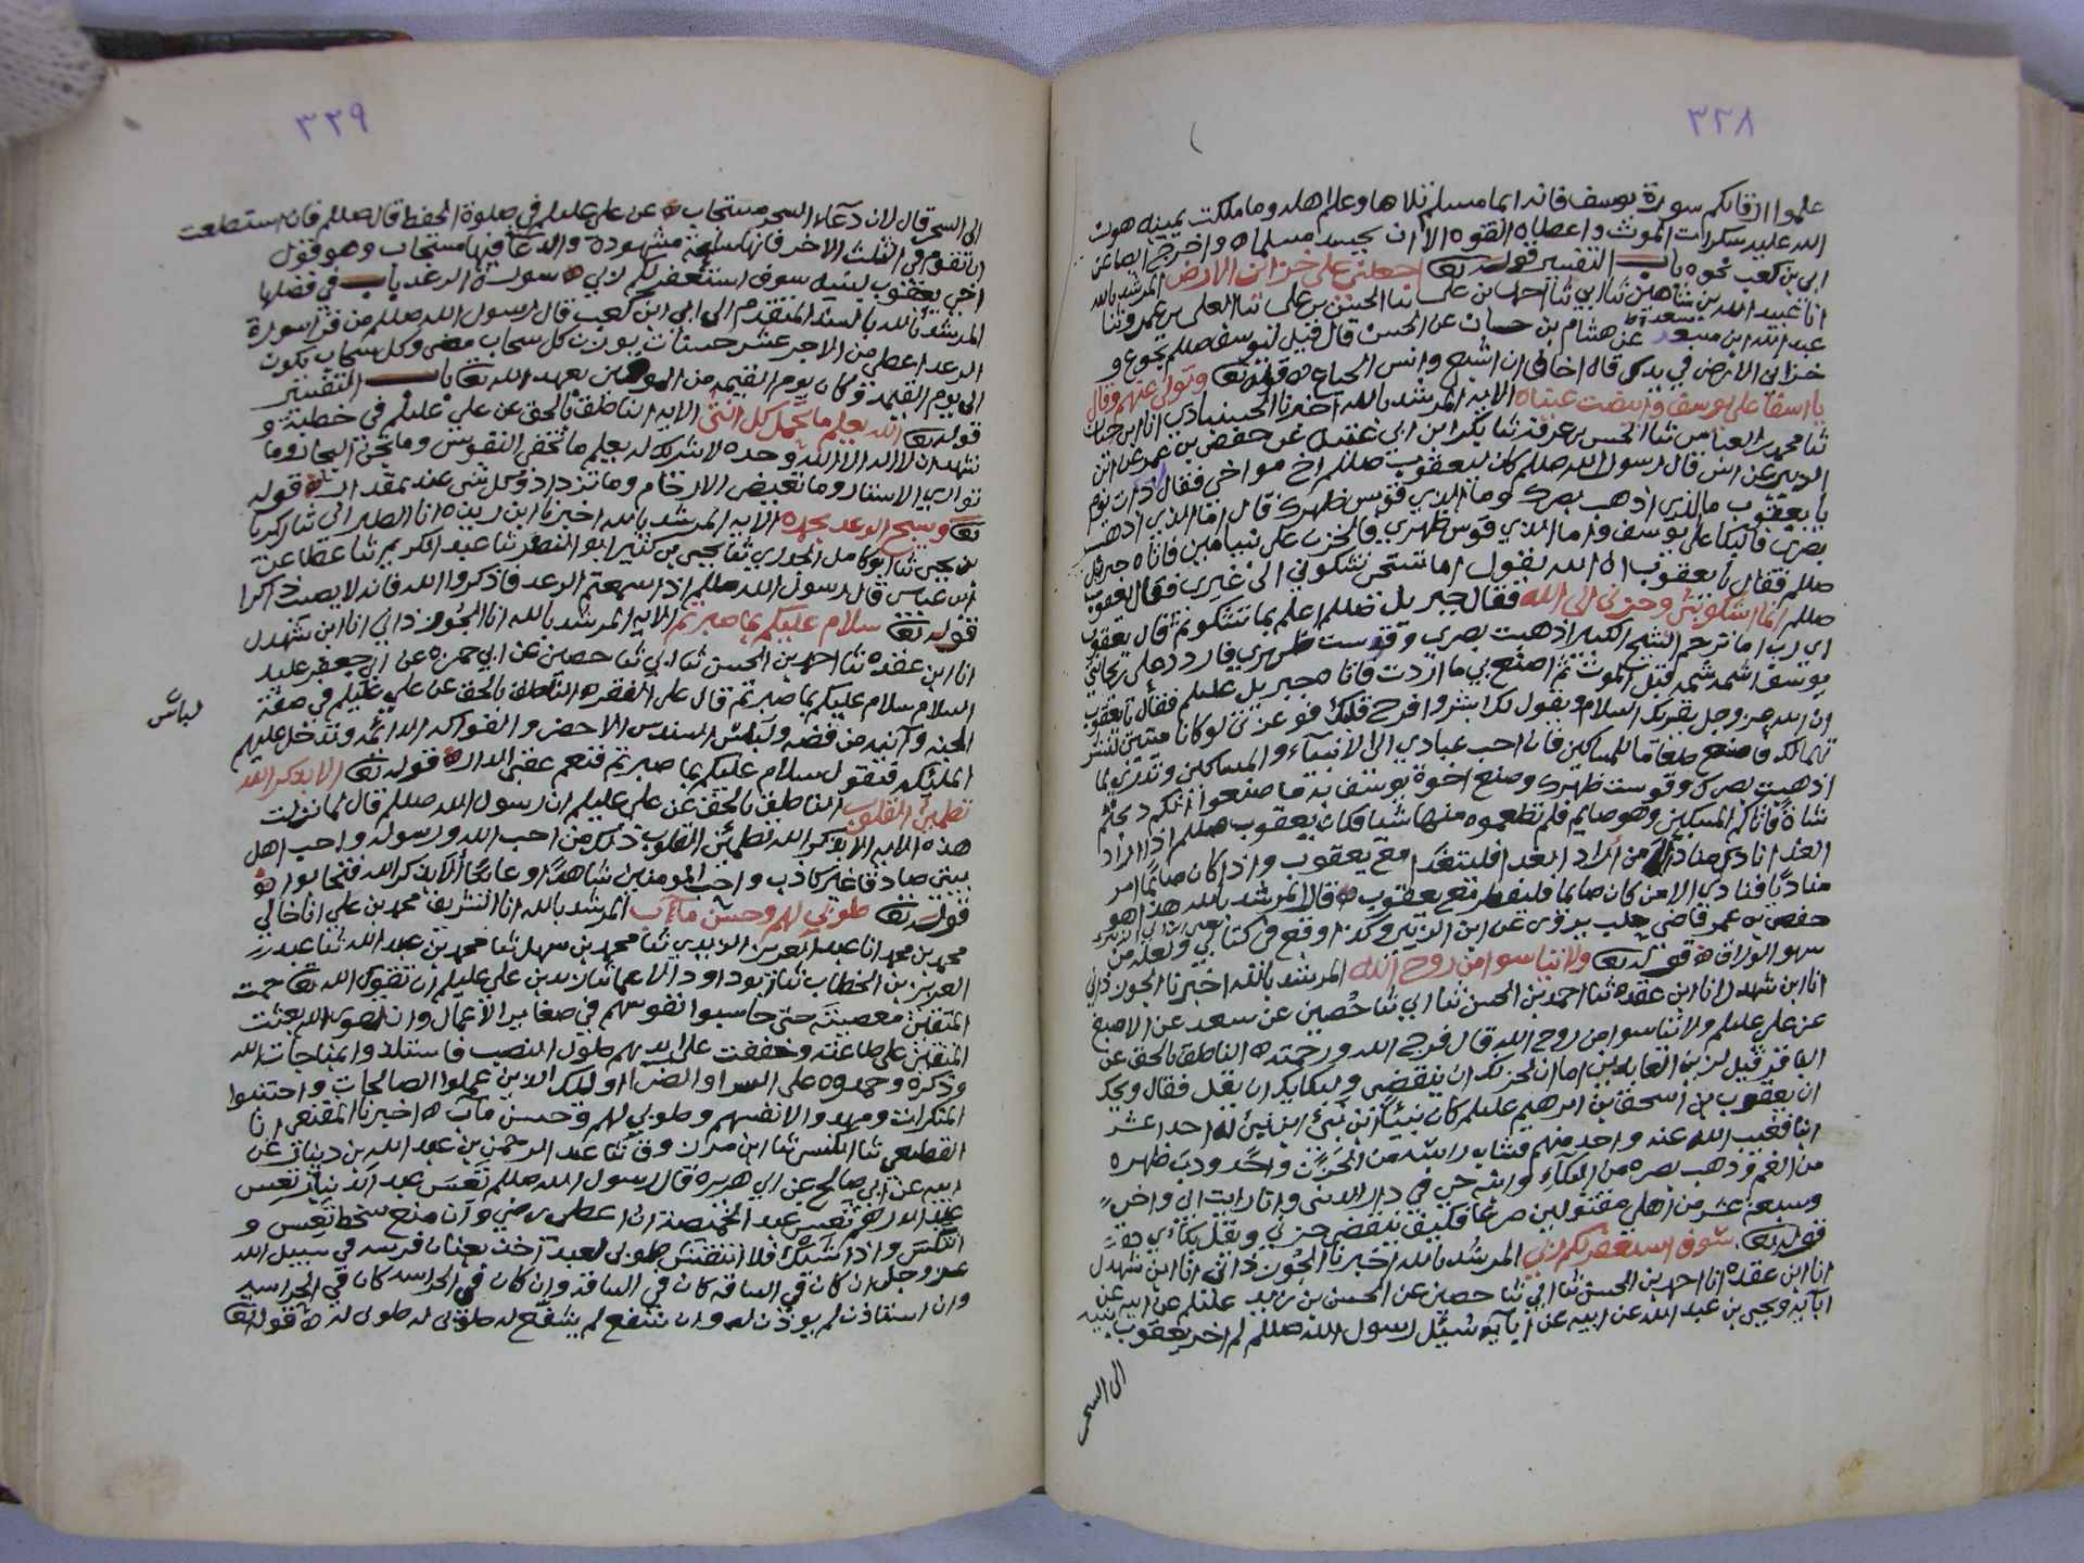 ٣٣٨
علموا ارقاكم سورة يوسف فانه ايما مسلم تلاها وعلم اهله وما ملكت يمينه هون
الله عليه سكرات الموت واعطاه القوه الا ان يحسد مسلما ه واخرج الصاعن
ابي بن كعب نحوه باب التفسير قوله تعا اجعلني على خزائن الارض المرشد بالله
انا عبيد الله بن شاهين ثنا ابي ثنا احمد بن علي ثنا الحسن بن علي ثنا العلي بن عمرو ثنا
عبد الله ابن مسعدة عن هشام بن حسان عن الحسن قال قيل ليوسف صللم تجوع و
خزائن الارض في يدك قال اخاف ان اشبع وانسى الجياع ه قوله تعا وتولى عنهم وقال
يا اسفا على يوسف وابيضت عيناه الايه المرشد بالله اخبرنا الحسنباذي انا ابن حيان
ثنا محمد بن العباس ثنا الحسن بن عرفه ثنا بكر ابن ابي غنيه عن حفص بن عمر عن ابن
الزبير عن انس قال رسول الله صللم كان ليعقوب صللم اخ مواخي فقال ذات يوم
يا يعقوب ما الذي اذهب بصرك وما الذي قوس ظهرك قال اما الذي اذهب
بصري فالبكا على يوسف واما الذي قوس ظهري فالحزن على بنيامين فاتاه جبريل
صللم فقال يا يعقوب ان الله يقول اما تستحي تشكوني الى غيري فقال يعقوب
صللم انما اشكو بثي وحزني الى الله فقال جبريل صللم اعلم بما تشكو ثم قال يعقوب
اي رب اما ترحم الشيخ الكبير اذهبت بصري وقوست ظهري فاردد علي ريحانتي
يوسف اشمه شمه قبل الموت ثم اصنع بي ما اردت فاتاه جبريل عليلم فقال يا يعقوب
ان الله عز وجل يقريك السلام ويقول لك ابشر وافرح قلبك فو عزتي لو كانا ميتين لنشر
تهما لك فاصنع طعاما للمساكين فان احب عبادي الي الانبياء والمساكين وتدري لما
اذهبت بصرك وقوست ظهرك وصنع اخوة يوسف به ما صنعوا انكم ذبحتم
شاة فاتاكم المسكين وهو صايم فلم تطعموه منها شيا فكان يعقوب صللم اذا اراد
الغدا نادى مناديا من اراد الغدا فليتغدا مع يعقوب واذا كان صايما امر
مناديا فنادي الا من كان صايما فليفطر مع يعقوب ه قال المرشد بالله هذا هو
حفص بن عمر قاضي حلب يروى عن ابن الزبير وكذا وقع في كتابي ولعله من
سهو الوراق ه قوله تعا ولا تياسوا من روح الله المرشد بالله اخبرنا الجوزذاني
انا ابن شهدل انا ابن عقده ثنا احمد بن الحسن ثنا ابي ثنا حصين عن سعد عن الاصبغ
عن علي عليلم ولا تياسوا من روح الله قال فرج الله ورحمته ه الناطق بالحق عن
الباقر قيل لزين العابدين اما ان لحزنك ان ينقضي ولبكايك ان يقل فقال ويحك
ان يعقوب بن اسحق بن ابرهيم عليلم كان نبيا ابن نبي ابن نبي له احد عشر
ابنا فغيب الله عنه واحد منهم فشاب راسه من الحزن واحدودب ظهره
من الغم وذهب بصره من البكاء وابنه حي في دار الدنيا وانا رايت ابي واخي
وسبعة عشر من اهلي مقتولين صرعا فكيف ينقضي حزني ويقل بكائي ه
قوله تعا سوف استغفر لكم ربي المرشد بالله اخبرنا الجوزذاني انا ابن شهدل
انا ابن عقده انا احمد بن الحسن ثنا ابي ثنا حصين عن الحسين بن زيد عليلم عن ابيه عن
ابائه ويحيى بن عبد الله عن ابيه عن ابائه سئل رسول الله صللم لم اخر يعقوب بنيه
الى السحر
٣٣٩
الى السحر قال لان دعاء السحر مستجاب ه عن علي عليلم في صلوة الحفظ قال صللم فان استطعت
ان تقوم في الثلث الاخر فانها ساعة مشهودة والدعا فيها مستجاب وهو قول
اخي يعقوب لبنيه سوف استغفر لكم ربي ه سورة الرعد باب في فضلها
المرشد بالله بالسند المتقدم الى ابي ابن كعب قال رسول الله صللم من قرا سورة
الرعد اعطي من الاجر عشر حسنات بوزن كل سحاب مضى وكل سحاب يكون
الى يوم القيمة وكان يوم القيمة من الموفين بعهد الله تعا باب التفسير
قوله تعا الله يعلم ما تحمل كل انثى الايه الناطق بالحق عن علي عليلم في خطبة و
نشهد ان لا اله الا الله وحده لا شريك له يعلم ما تخفي النفوس وما تجن البحار وما
تواري الاسنار وما تغيض الارحام وما تزداد وكل شي عنده بمقدار ه قوله
تعا ويسبح الرعد بحمده الايه المرشد بالله اخبرنا ابن ريذه انا الطبراني ثنا زكريا
بن يحيى ثنا ابو كامل الجحدري ثنا يحيى بن كثير ابو النضر ثنا عبد الكريم ثنا عطا عن
ابن عباس قال رسول الله صللم اذا سمعتم الرعد فاذكروا الله فانه لا يصيب ذاكرا
قوله تعا سلام عليكم بما صبرتم الايه المرشد بالله انا الجوزذاني انا ابن شهدل
انا ابن عقده ثنا احمد بن الحسن ثنا ابي ثنا حصين عن ابي حمزه عن ابي جعفر عليه
السلام سلام عليكم بما صبرتم قال على الفقر ه الناطق بالحق عن علي عليلم في صفة
الجنه وآنيه من فضه ولباس السندس الاخضر والفواكه الدائمه وتدخل عليهم
لباس
المليكه فتقول سلام عليكم بما صبرتم فنعم عقبى الدار ه قوله تعا الا بذكر الله
تطمئن القلوب الناطق بالحق عن علي عليلم ان رسول الله صللم قال لما نزلت
هذه الايه الا بذكر الله تطمئن القلوب ذلك من احب الله ورسوله واحب اهل
بيتي صادقا غير كاذب واحب المومنين شاهدا وغايبا الا بذكر الله فتحابوا ه
قوله تعا طوبى لهم وحسن مآب المرشد بالله انا الشريف محمد بن علي انا خالي
محمد بن محمد انا عبد العزيز الزيدي ثنا محمد بن سهل ثنا محمد بن عبد الله ثنا عبد
العزيز بن الخطاب ثنا داود الاعما ثنا زيد بن علي عليلم ان تقوى الله تعا حمت
المتقين معصيته حتى حاسبوا نفوسهم في صغاير الاعمال وان تقوى الله بعثت
المتقين على طاعته وخففت على ابدانهم طول النصب فاستلذوا مناجات الله
وذكره وحمدوه على السرا والضرا اوليك الذين عملوا الصالحات واجتنبوا
المنكرات ومهدوا لانفسهم وطوبى لهم وحسن مآب ه اخبرنا المقنعي انا
القطيعي ثنا الكنسي ثنا ابن مرزوق ثنا عبد الرحمن بن عبد الله بن دينار عن
ابيه عن ابي صالح عن ابي هريرة قال رسول الله صللم تعس عبد الدينار تعس
عبد الدرهم تعس عبد الخميصة ان اعطي رضي وان منع سخط تعس و
انتكس واذا شيك فلا انتقش طوبى لعبد آخذ بعنان فرسه في سبيل الله
عز وجل ان كان في الساقة كان في الساقة وان كان في الحراسه كان في الحراسه
وان استاذن لم يوذن له وان شفع لم يشفع له طوبى له طوبى له ه قوله تعا